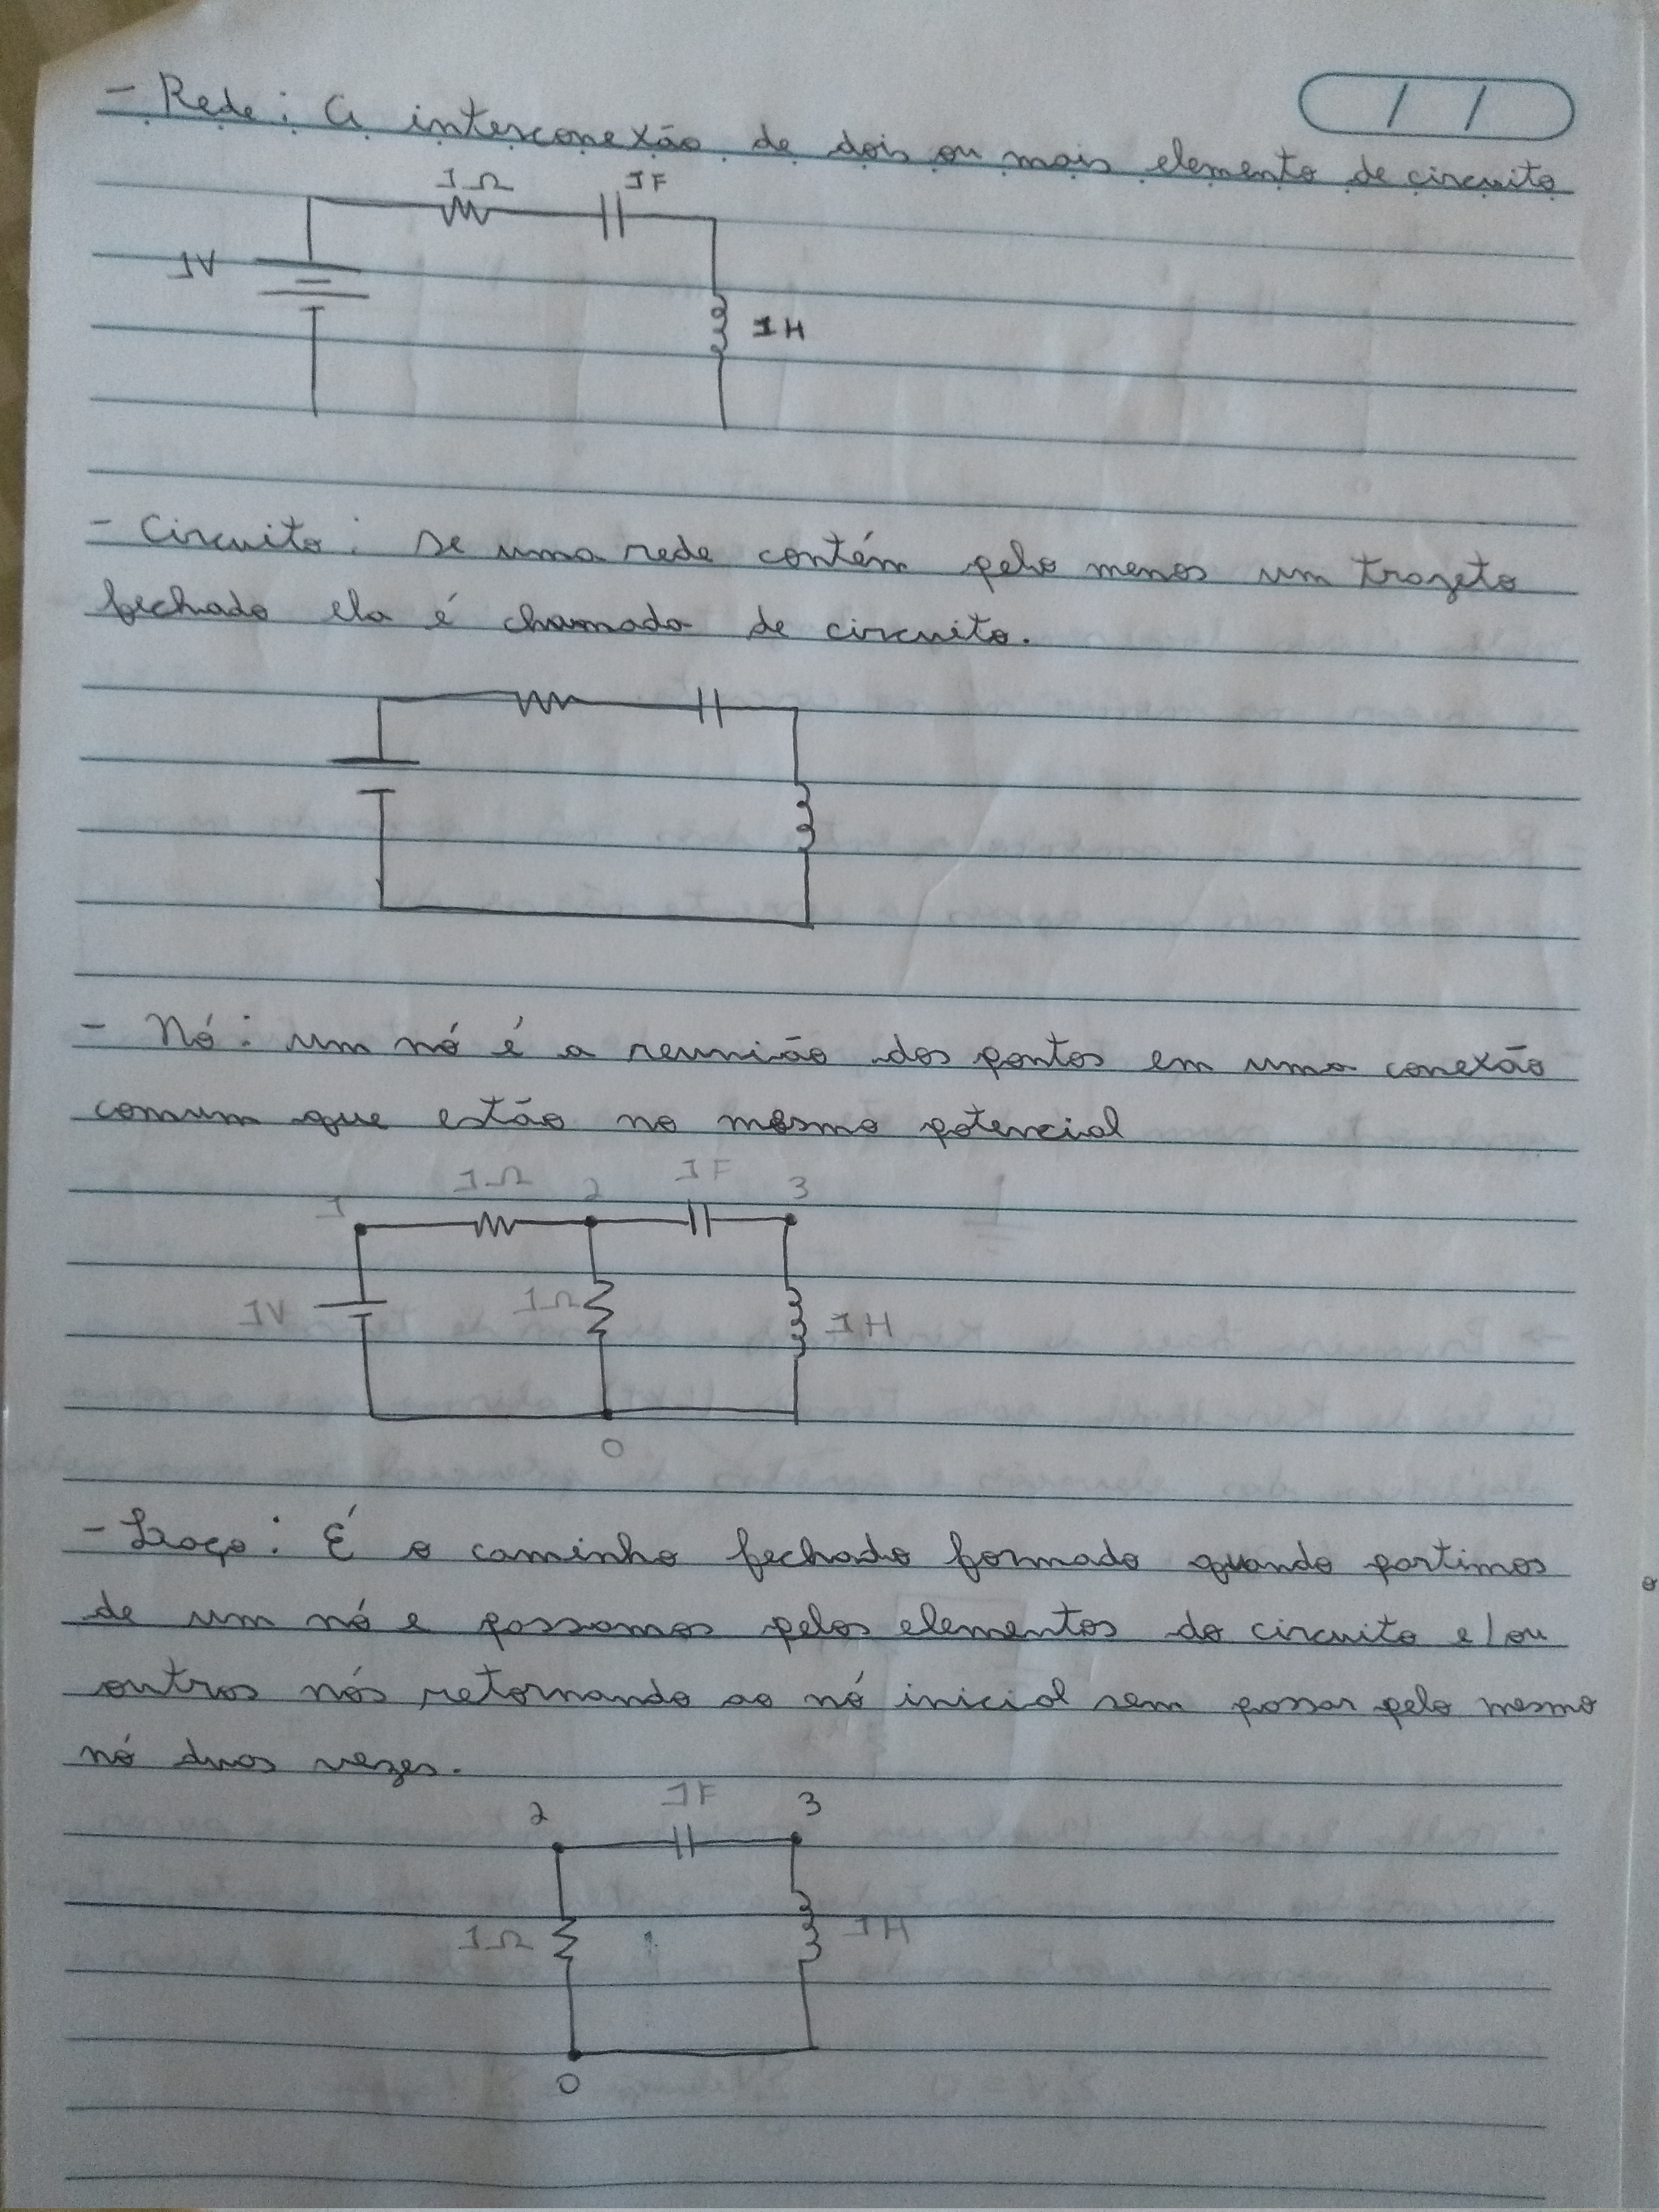 / /
- Rede: A interconexão de dois ou mais elemento de circuito
1Ω 1F
1V
1H
- Circuito: se uma rede contém pelo menos um trajeto
fechado ela é chamada de circuito.
- Nó: um nó é a reunião dos pontos em uma conexão
comum que estão no mesmo potencial
1 1Ω 2 1F 3
1V 1Ω 1H
0
- Laço: É o caminho fechado formado quando partimos
de um nó e passamos pelos elementos do circuito e/ou
outros nós, retornando ao nó inicial sem passar pelo mesmo
nó duas vezes.
2 1F 3
1Ω 1H
0